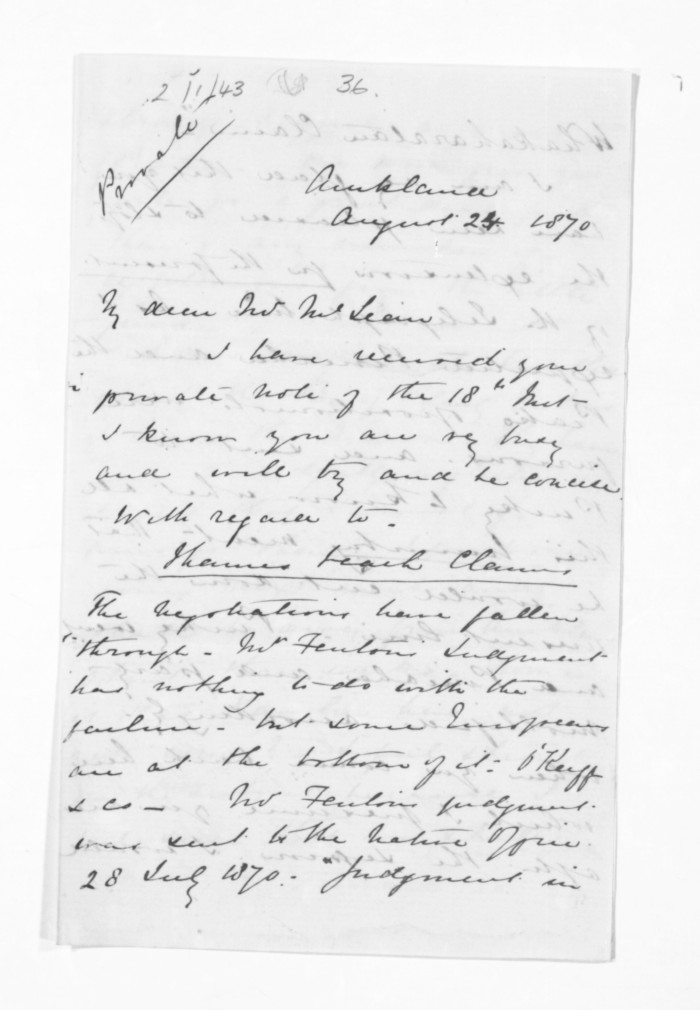 36.
Private
Auckland
August 24 1870
My dear Mr McLean
I have received your
private note of the 18th Inst
I know you are very busy
and will try and be concise.
With regard to -
Thames beach Claims
The negotiations have fallen
through - Mr Fenton's Judgment
has nothing to do with the
failure - but some Europeans
are at the bottom of it - O'Keeff
& co - Mr Fenton's judgment
was sent to the Native Office
28 July 1870 - "Judgment in